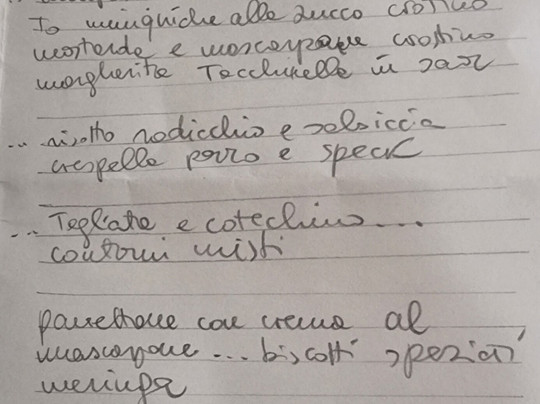 To muuquiche alla zucca crostino
mostarda e mascarpone crostino
margherita Tacchinella in saor
... risotto radicchio e salsiccia
crespella porro e speck
... Tagliata e cotechino ...
contorni misti
panettone con crema al
mascarpone ... biscotti speziati,
meringa